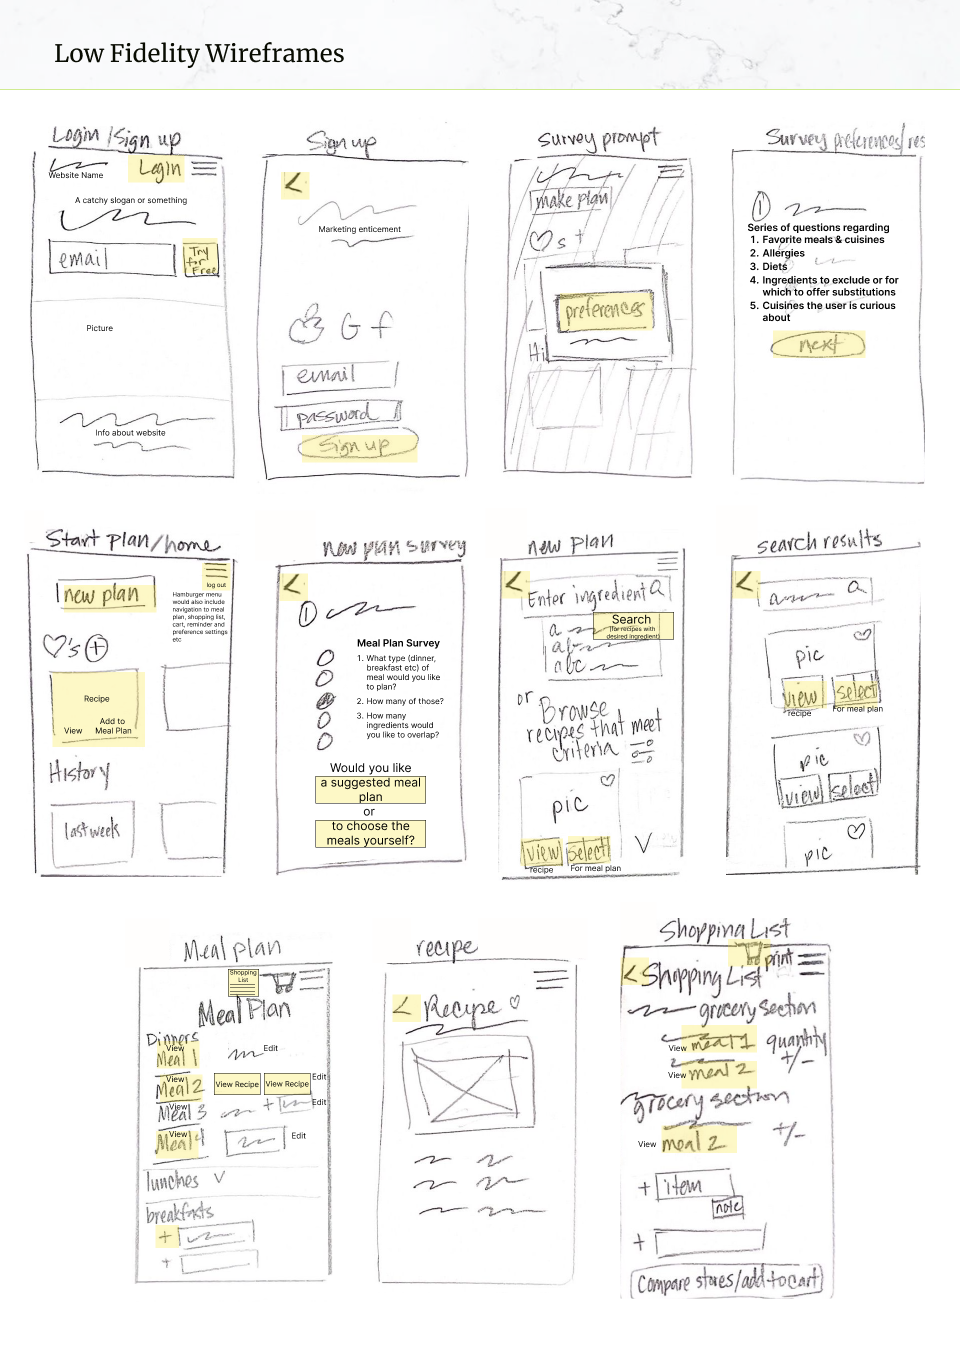 Low Fidelity Wireframes
Login/Sign up
Website Name
Login
A catchy slogan or something
email
Try
for
Free
Picture
Info about website
Sign up
Marketing enticement
G f
email
password
Sign up
survey prompt
make plan
s +
preferences
Hi
Survey preferences/res
1
Series of questions regarding
1. Favorite meals & cuisines
2. Allergies
3. Diets
4. Ingredients to exclude or for
which to offer substitutions
5. Cuisines the user is curious
about
next
Start plan/home
new plan
log out
Hamburger menu
would also include
navigation to meal
plan, shopping list,
cart, reminder and
preference settings
etc
's +
Recipe
View
Add to
Meal Plan
History
last week
new plan survey
1
Meal Plan Survey
1. What type (dinner,
breakfast etc) of
meal would you like
to plan?
2. How many of those?
3. How many
ingredients would
you like to overlap?
Would you like
a suggested meal
plan
or
to choose the
meals yourself?
new plan
Enter ingredient
Search
(for recipes with
desired ingredient)
a
ab
abc
or Browse
recipes that meet
criteria
pic
view select
recipe For meal plan
search results
a
pic
view select
recipe For meal plan
pic
view select
pic
Meal plan
Shopping
List
Meal Plan
Dinners
View
Meal 1
Edit
View
Meal 2
View Recipe View Recipe
Edit
View
Meal 3
+
Edit
View
Meal 4
Edit
lunches
breakfasts
+
+
recipe
< Recipe
Shopping List
print
< Shopping List
grocery section
View meal 1 quantity
+/-
View meal 2
grocery section
View meal 2 +/-
+ item
note
+
Compare stores/add to cart